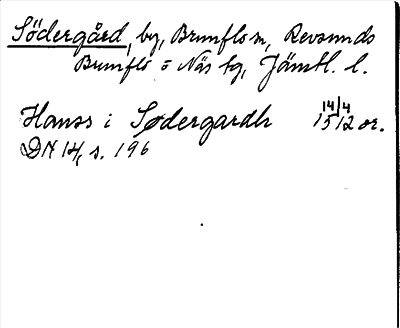 Södergård, by, Brunflo sn, Revsunds
Brunflo = Näs tg, Jämtl. l.
Hanss i Sødergardh 14/4 1512 or.
DN 14, s. 196